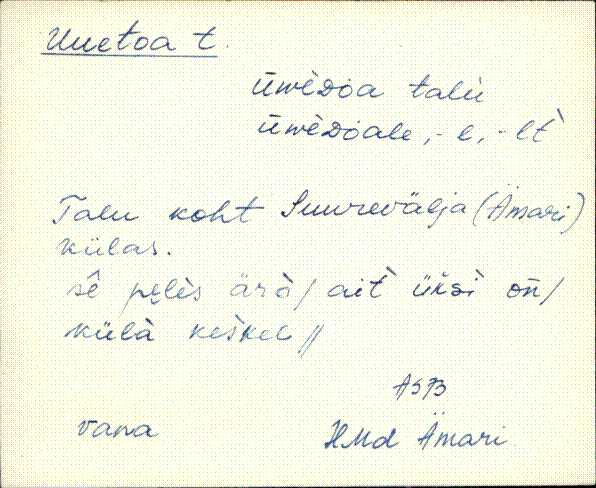 Uuetoa t.
ūwèDoa talù
ūwèDoale, -l, -lt̀
Talu koht Suurevälja (Ämari)
külas.
sê pęlès ärà / ait̀ üksì on /
külà keskel //
AS73
vana HMd Ämari